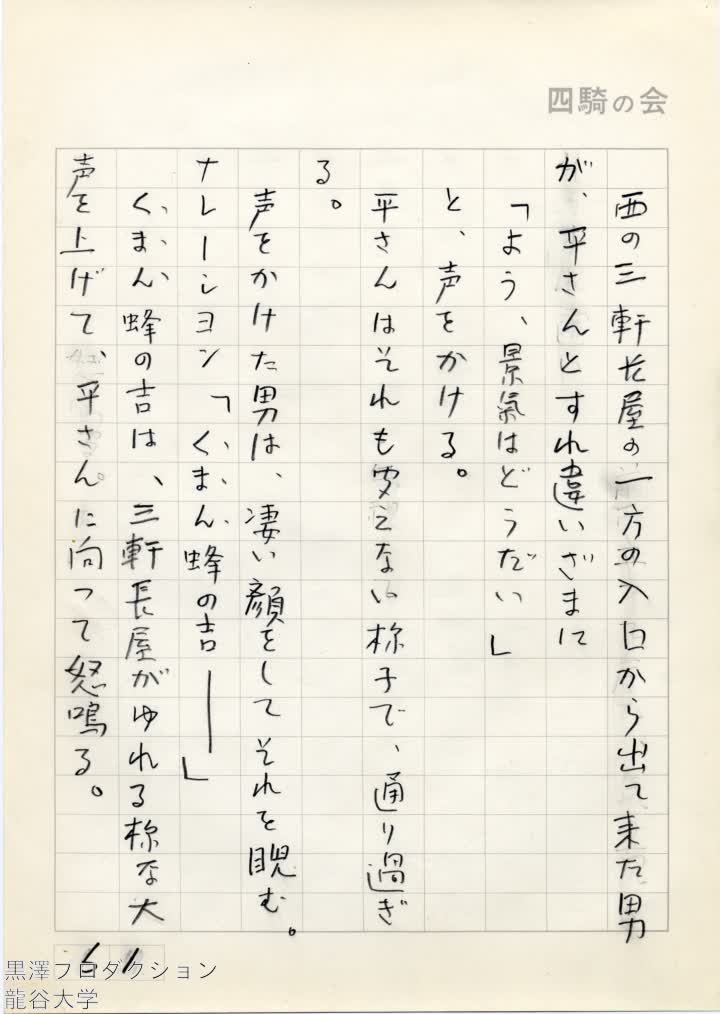 四騎の会
西の三軒長屋の一方の入口から出て来た男
が、平さんとすれ違いざまに
「よう、景氣はどうだい」
と、声をかける。
平さんはそれも聞えない様子で、通り過ぎ
る。
声をかけた男は、凄い顔をしてそれを睨む。
ナレーション「くまん蜂の吉――」
くまん蜂の吉は、三軒長屋がゆれる様な大
声を上げて、平さんに向って怒鳴る。
61
黒澤プロダクション
龍谷大学